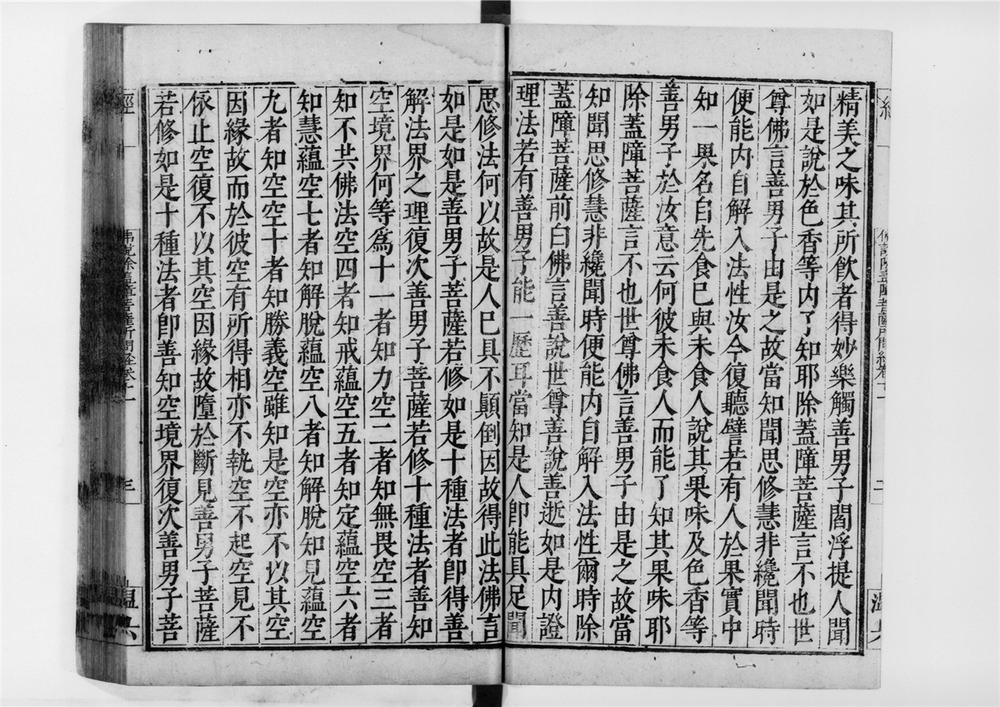 精美之味其所飲者得妙樂觸善男子閻浮提人聞
如是說於色香等內了知耶除蓋障菩薩言不也世
尊佛言善男子由是之故當知聞思修慧非纔聞時
便能內自解入法性汝今復聽譬若有人於果實中
知一果名自先食已與未食人說其果味及色香等
善男子於汝意云何彼未食人而能了知其果味耶
除蓋障菩薩言不也世尊佛言善男子由是之故當
知聞思修慧非纔聞時便能內自解入法性爾時除
蓋障菩薩前白佛言善說世尊善說善逝如是內證
理法若有善男子能一歷耳當知是人即能具足聞
思修法何以故是人已具不顛倒因故得此法佛言
如是如是善男子菩薩若修如是十種法者即得善
解法界之理復次善男子菩薩若修十種法者善知
空境界何等為十一者知力空二者知無畏空三者
知不共佛法空四者知戒蘊空五者知定蘊空六者
知慧蘊空七者知解脫蘊空八者知解脫知見蘊空
九者知空空十者知勝義空雖知是空亦不以其空
因緣故而於彼空有所得相亦不執空不起空見不
依止空復不以其空因緣故墮於斷見善男子菩薩
若修如是十種法者即善知空境界復次善男子菩
經
三
溫六